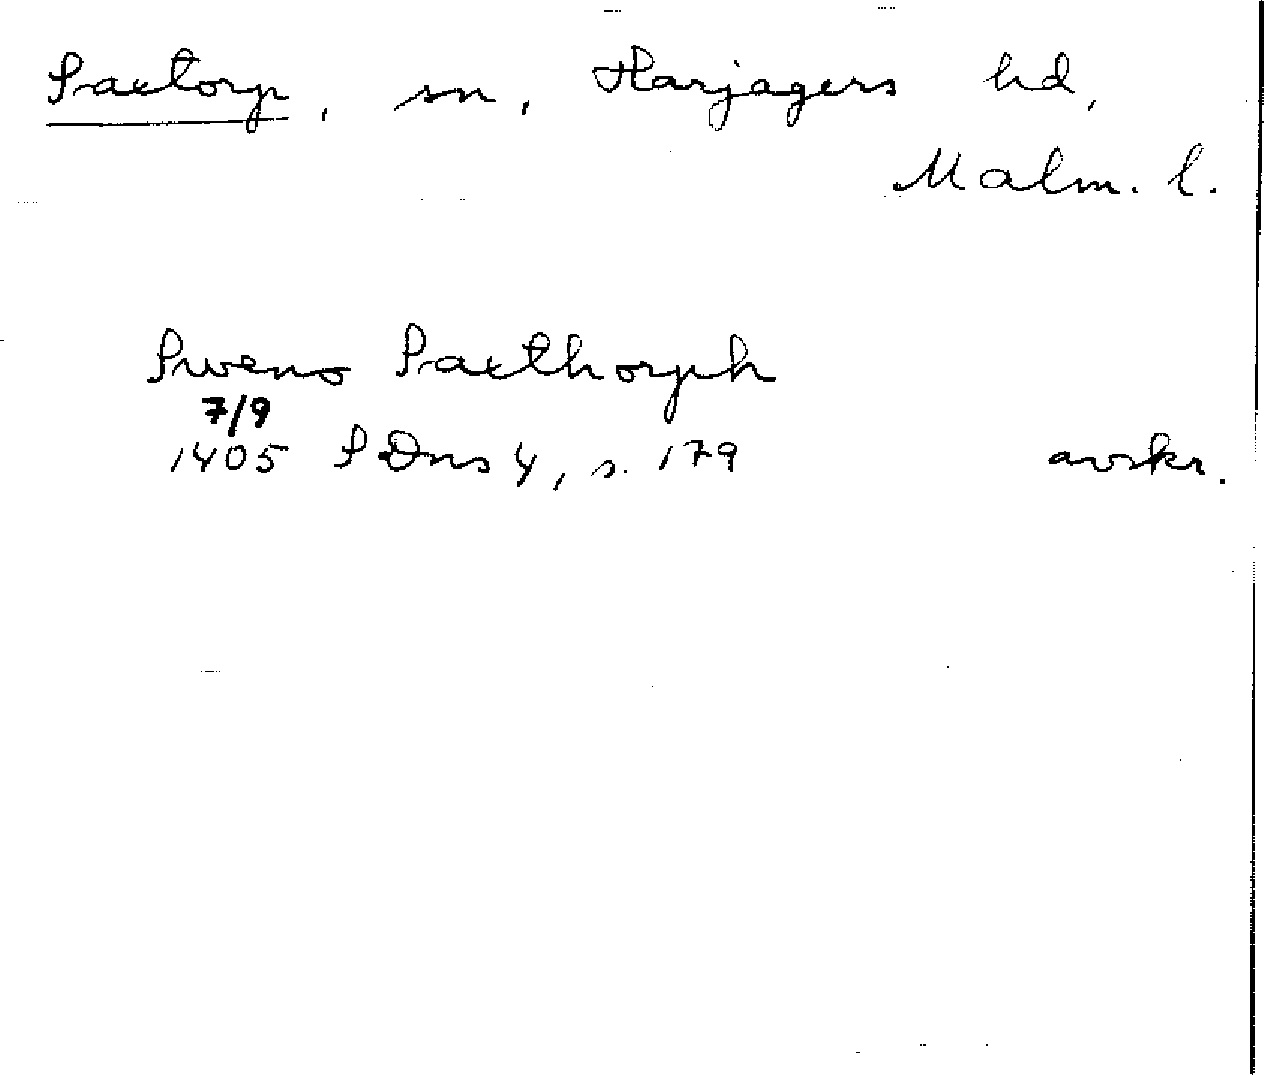 Saxtorp, sn, Harjagers hd,
Malm. l.
Sweno Saxthorph
7/9
1405 SDns 4, s. 179 avskr.